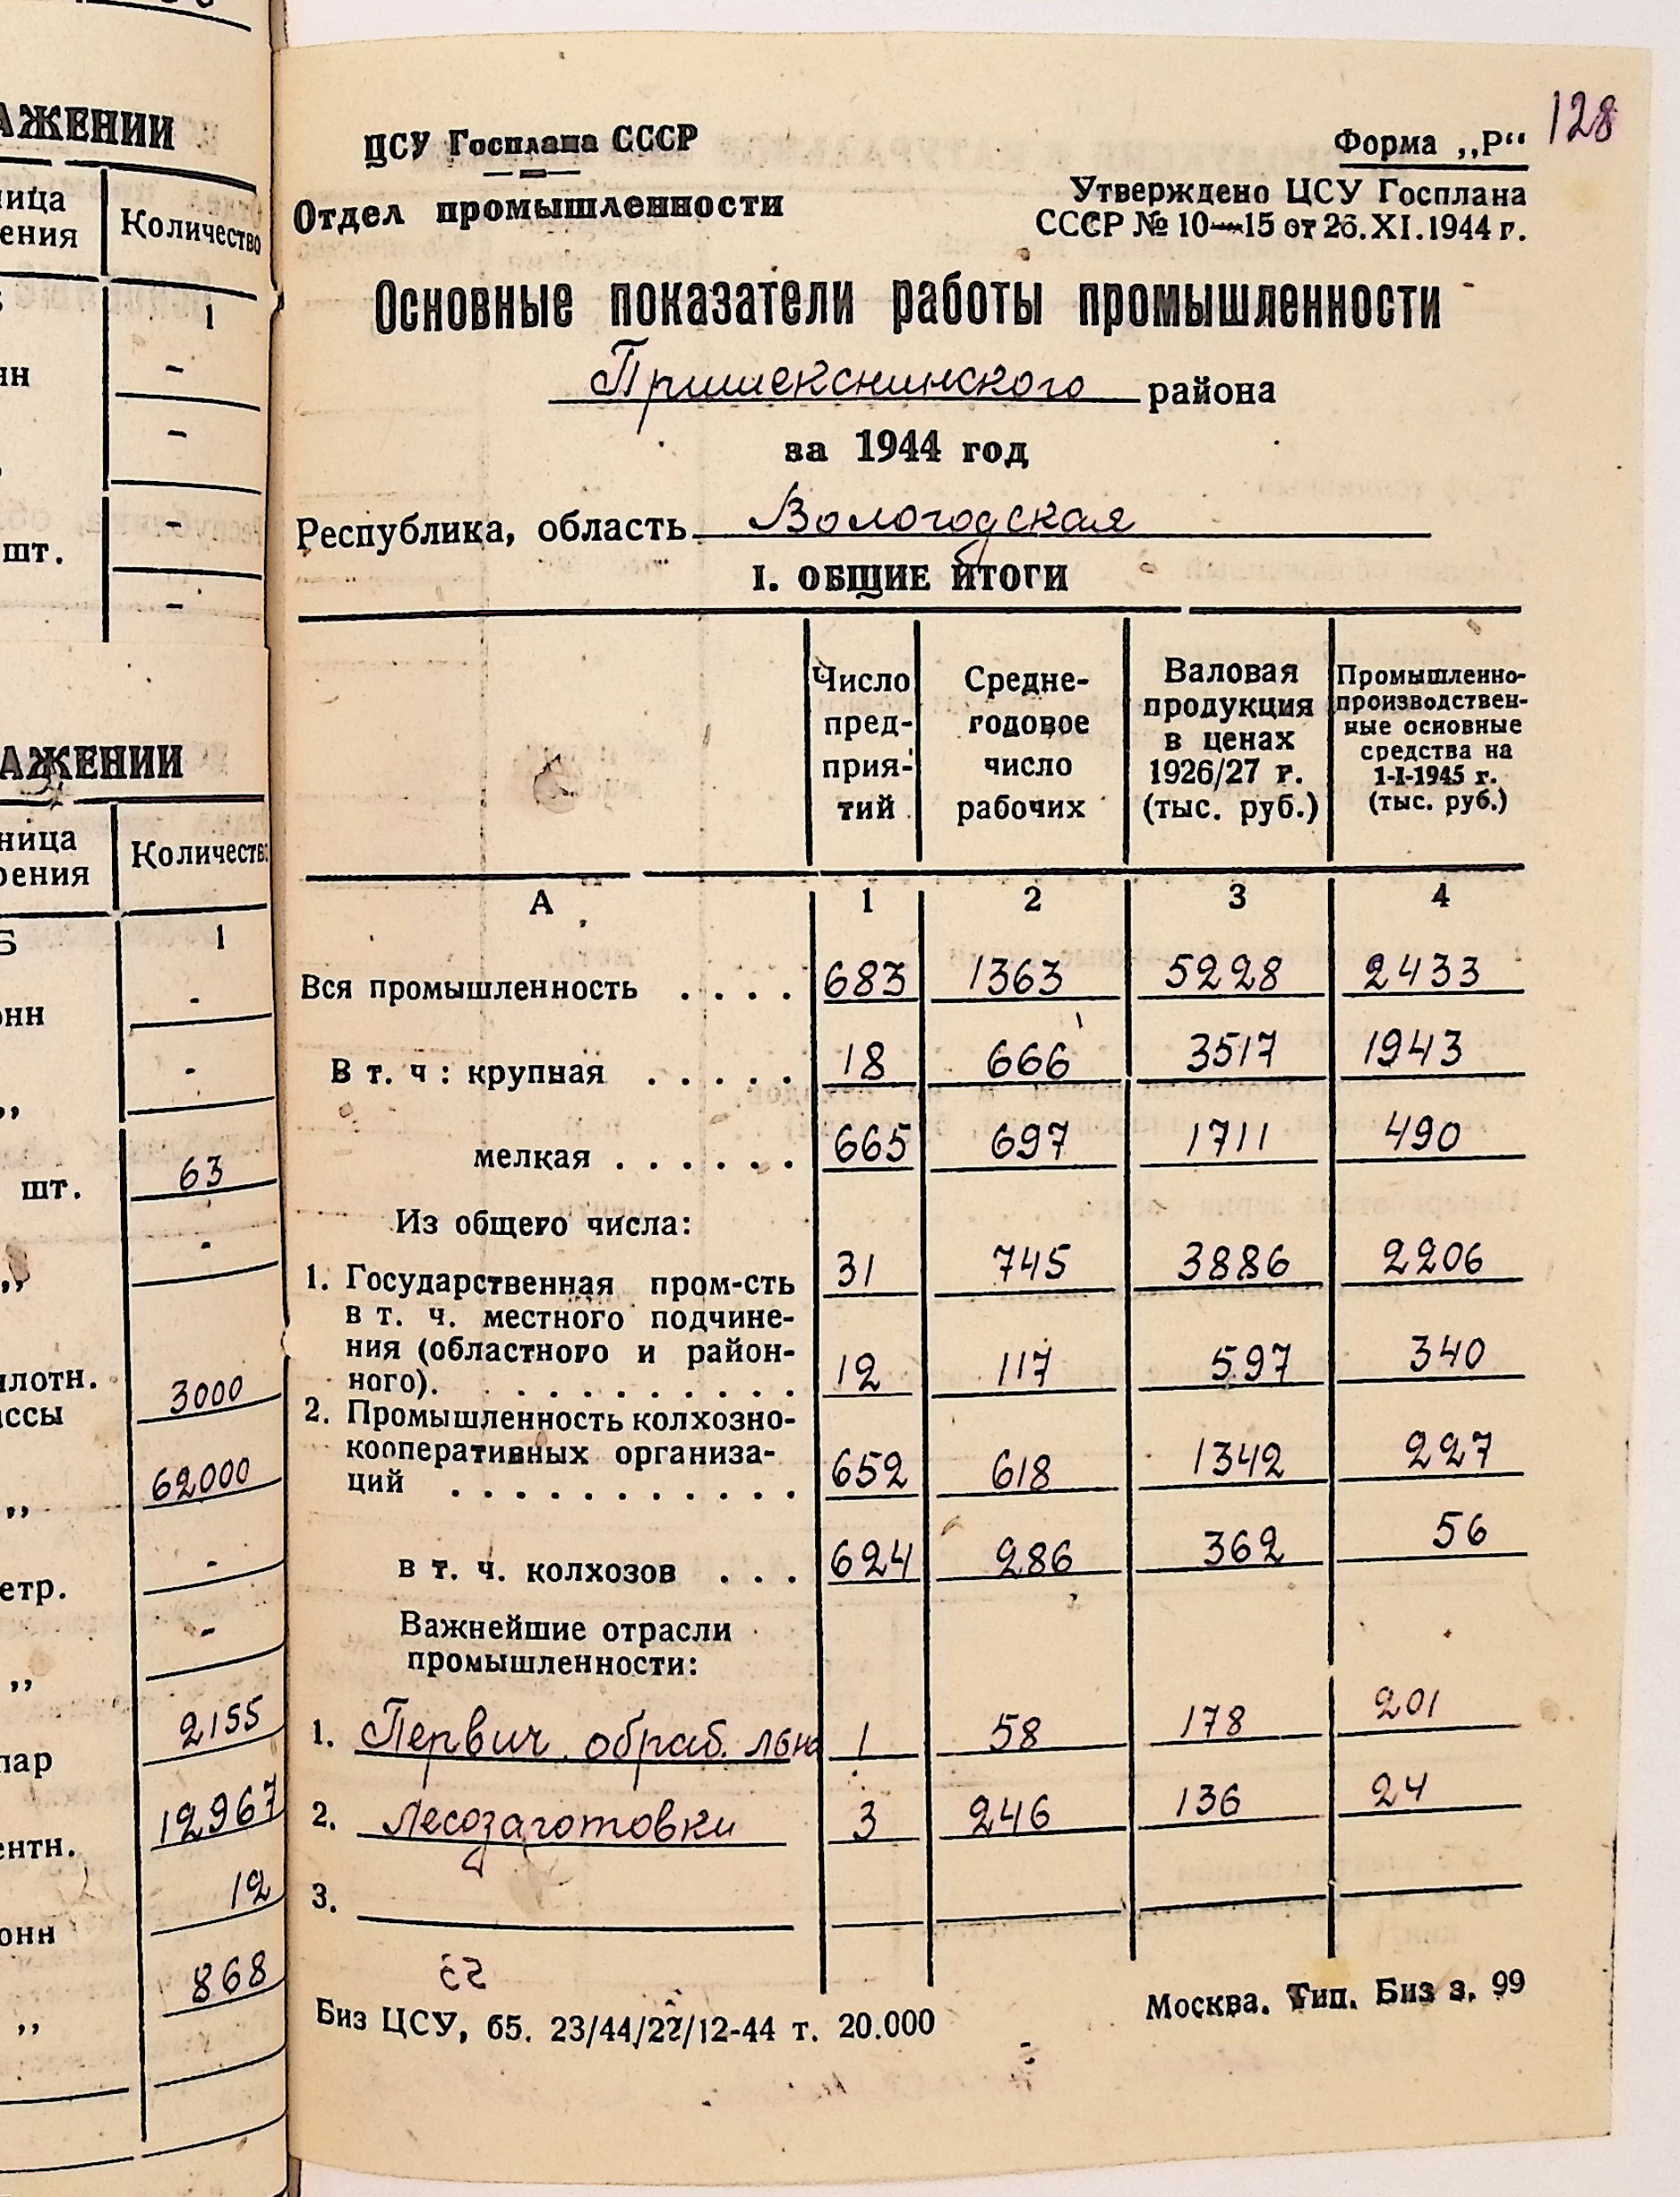 АЖЕНИИ
ница
ения
Количество
1
нн
-
-
-
шт.
-
АЖЕНИИ
ница
рения
Количество
Б
1
онн
-
-
„
шт.
63
„
-
плотн.
ассы
3000
„
62000
етр.
-
„
-
пар
2155
ентн.
12967
12
онн
868
„
128
ЦСУ Госплана СССР
Форма „Р“
Отдел промышленности
Утверждено ЦСУ Госплана
СССР № 10—15 от 26.XI.1944 г.
Основные показатели работы промышленности
Пришекснинского района
за 1944 год
Республика, область Вологодская
I. ОБЩИЕ ИТОГИ
Число пред-прия-тий
Средне-годовое число рабочих
Валовая продукция в ценах 1926/27 г. (тыс. руб.)
Промышленно-производствен-ные основные средства на 1-I-1945 г. (тыс. руб.)
А 1 2 3 4
Вся промышленность . . . . 683 1363 5228 2433
В т. ч : крупная . . . . . 18 666 3517 1943
мелкая . . . . . . 665 697 1711 490
Из общего числа:
1. Государственная пром-сть 31 745 3886 2206
в т. ч. местного подчине-
ния (областного и район-
ного). . . . . . . . . . . 12 117 597 340
2. Промышленность колхозно-
кооперативных организа-
ций . . . . . . . . . . . 652 618 1342 227
в т. ч. колхозов . . . 624 286 362 56
Важнейшие отрасли
промышленности:
1. Первич. обраб. льна 1 58 178 201
2. Лесозаготовки 3 246 136 24
3.
Биз ЦСУ, б5. 23/44/22/12-44 т. 20.000
Москва. Тип. Биз з. 99